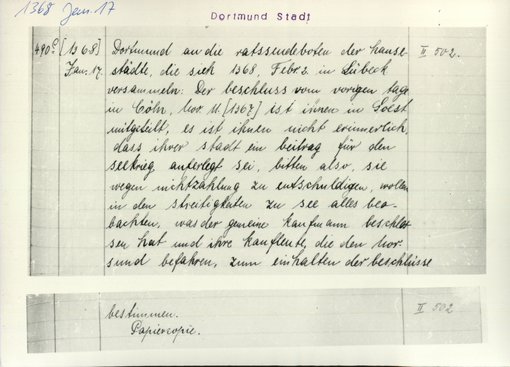 1368 Jan. 17
Dortmund Stadt
490c [1368] Dortmund an die ratssendeboten der hanse- II 502.
Jan. 17. städte, die sich 1368, Febr. 2. in Lübeck
versammeln: Der beschluss vom vorigen tage
in Cöln, Nov. 11. [1367] ist ihnen in Soest
mitgeteilt, es ist ihnen nicht erinnerlich,
dass ihrer stadt ein beitrag für den
seekrieg auferlegt sei, bitten also, sie
wegen nichtzahlung zu entschuldigen, wollen
in den streitigkeiten zu see alles beo-
bachten, was der gemeine kaufmann beschlos-
sen hat und ihre kaufleute, die den Nor-
sund befahren, zum einhalten der beschlüsse
bestimmen. II 502
Papiercopie.